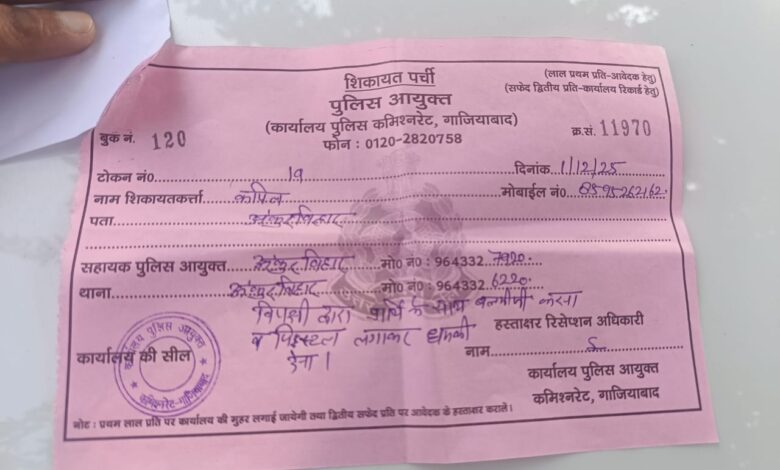 शिकायत पर्ची
(लाल प्रथम प्रति-आवेदक हेतु)
(सफेद द्वितीय प्रति-कार्यालय रिकार्ड हेतु)
पुलिस आयुक्त
(कार्यालय पुलिस कमिश्नरेट, गाजियाबाद)
बुक नं. 120
फोन : 0120-2820758
क्र.सं. 11970
टोकन नं0 19 दिनांक 1/12/25
नाम शिकायतकर्त्ता कपिल मोबाईल नं0 8595262162
पता अंकुर विहार
सहायक पुलिस आयुक्त अंकुर विहार मो0 नं0 : 964332 7920
थाना अंकुर विहार मो0 नं0 : 964332 6220
विपक्षी द्वारा प्रार्थी के साथ करना
व पिस्टल लगाकर धमकी
देना।
हस्ताक्षर रिसेप्शन अधिकारी
नाम
कार्यालय की सील
कार्यालय पुलिस आयुक्त
कमिश्नरेट-गाजियाबाद
कार्यालय पुलिस आयुक्त
कमिश्नरेट, गाजियाबाद
नोट : प्रथम लाल प्रति पर कार्यालय की मुहर लगाई जायेगी तथा द्वितीय सफेद प्रति पर आवेदक के हस्ताक्षर करालें।